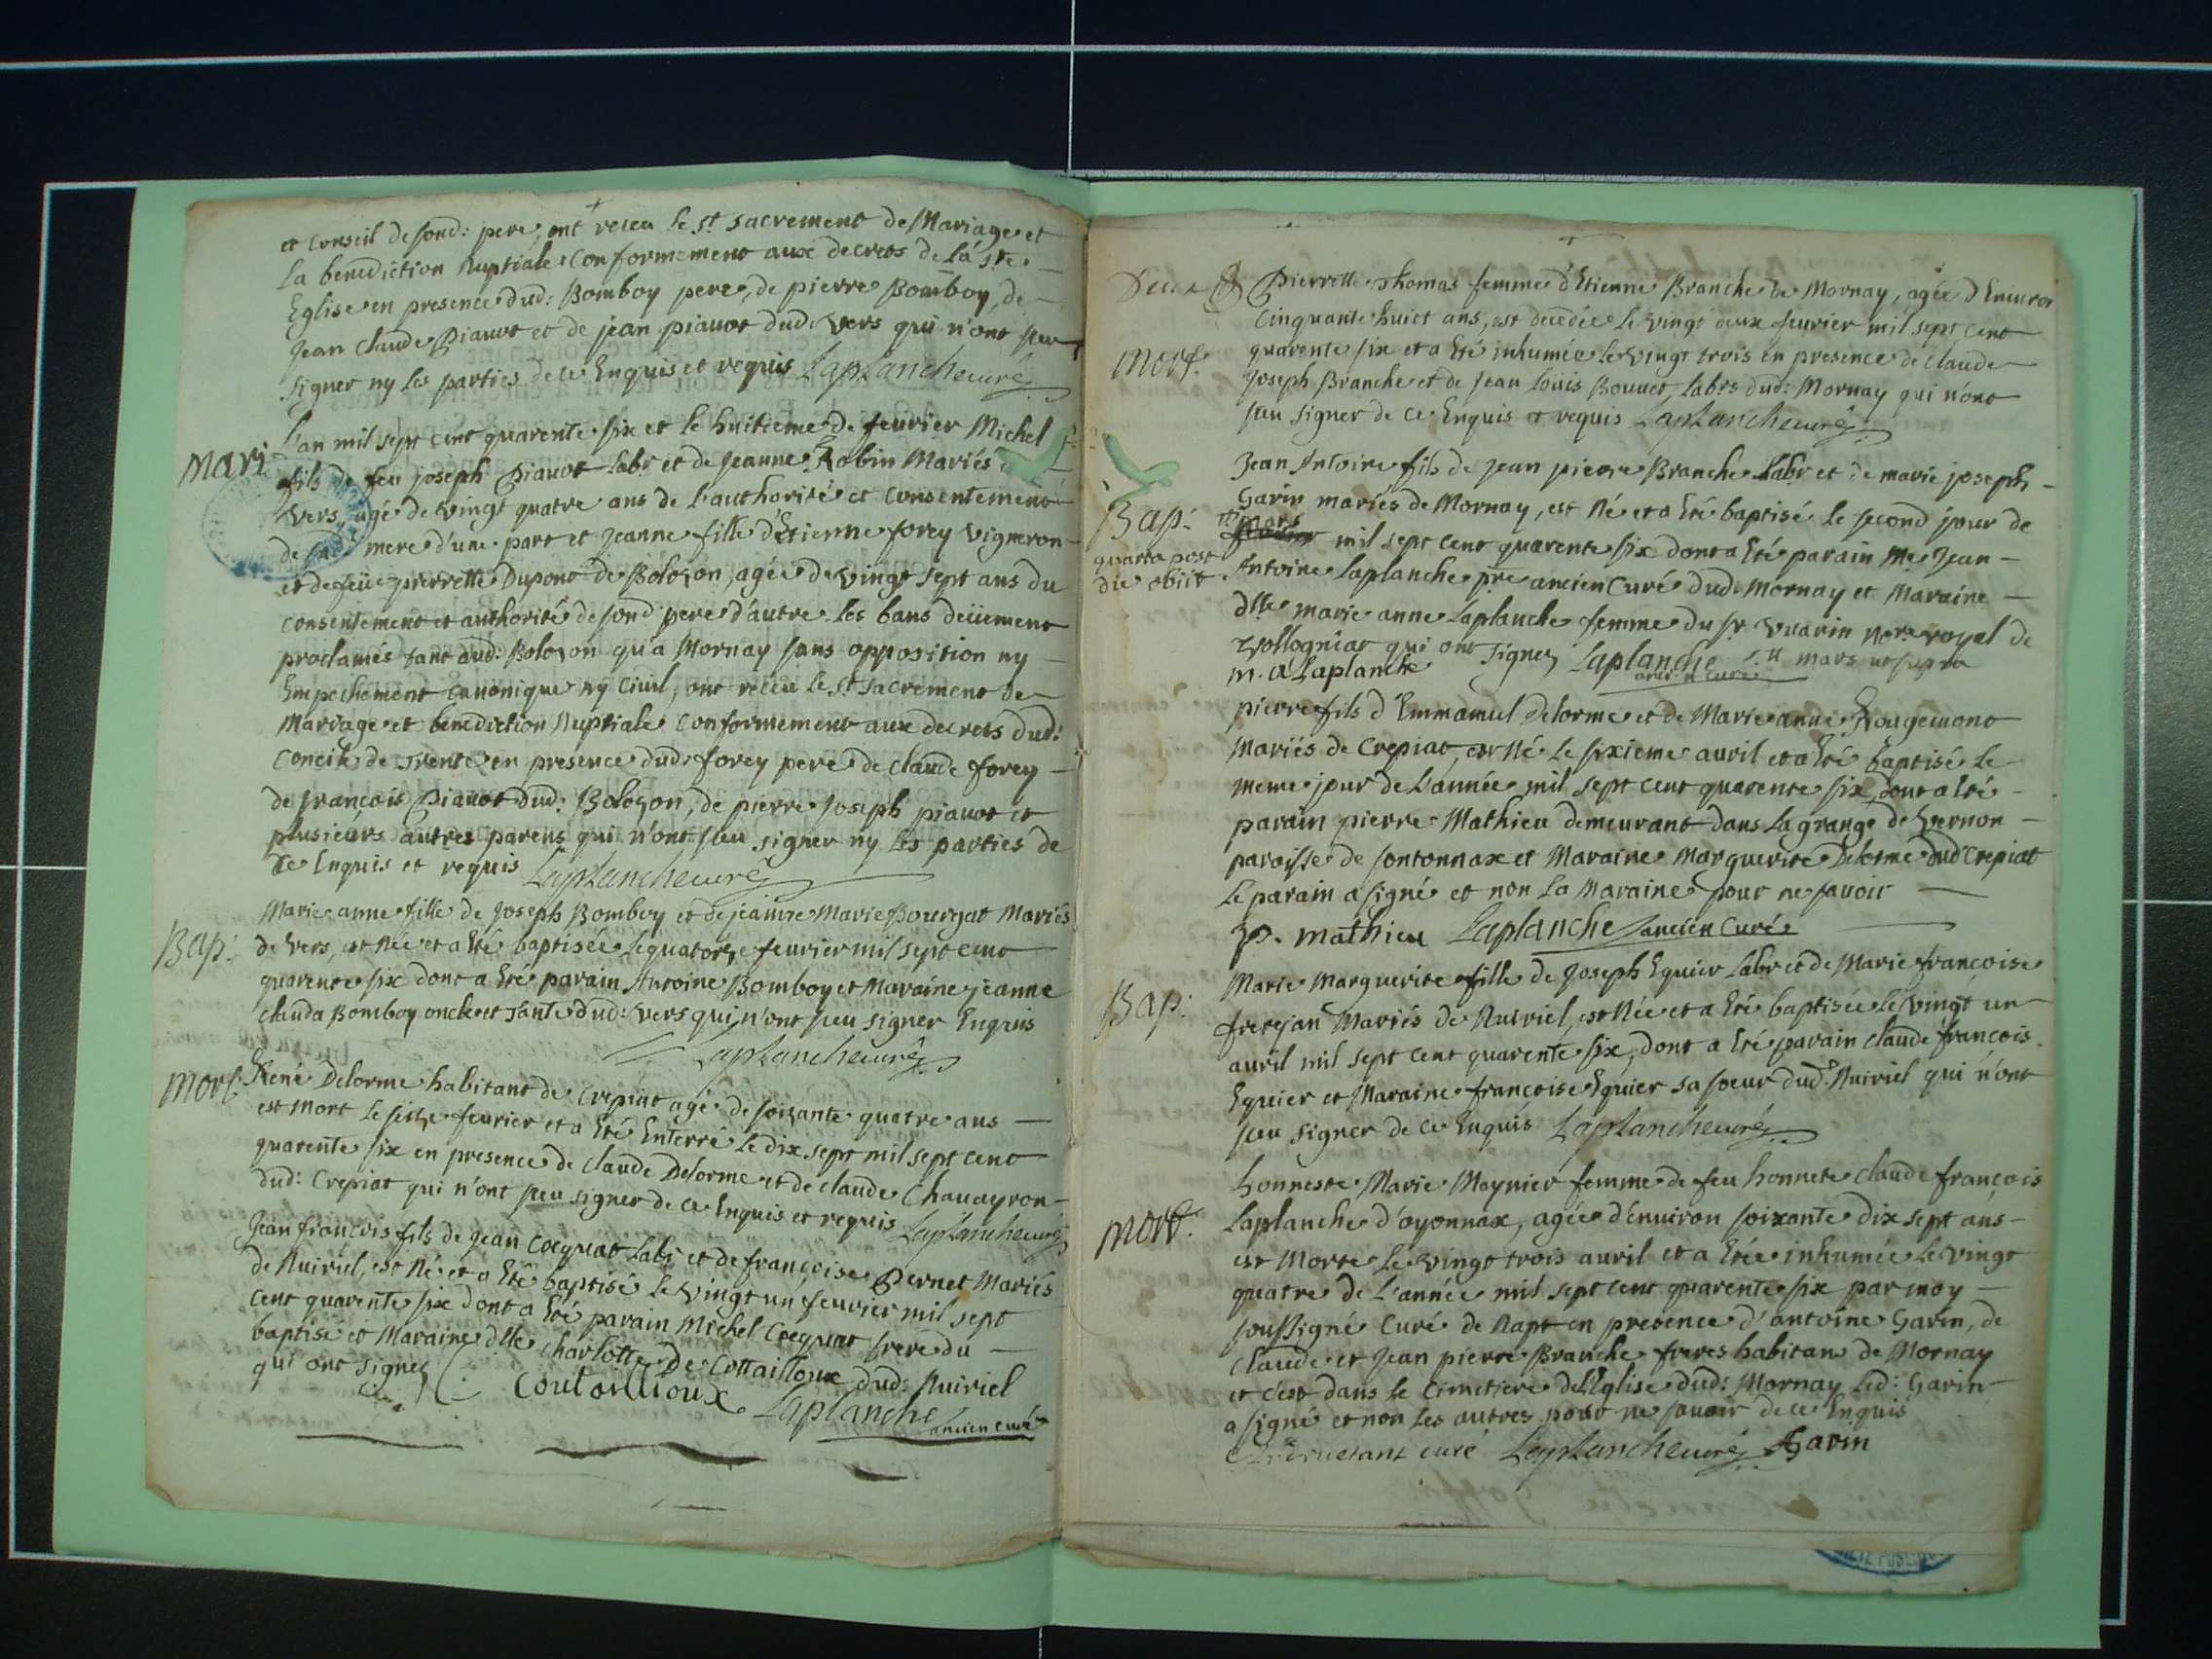 et conseil de sond: pere, ont receu le st sacrement de Mariage et
la benediction Nuptiale conformement aux decrets de la ste
Eglise en presence dud: Bomboy pere, de pierre Bomboy, de
Jean Claude Piauot et de jean piauot dud: Vers qui n'ont sceu
signer ny les parties de ce Enquis et requis Laplanche curé
Mari
L'an mil sept cent quarente six et le huitieme de feurier Michel
fils de feu joseph Piauot Labr et de Jeanne Robin Mariés
Vers, agé de vingt quatre ans de L'authorité et consentement
de sad: mere d'une part et Jeanne fille d'Etienne forey Vigneron
et de feüe pierrette Dupont de Bolozon, agée de vingt sept ans du
consentement et authorité de sond pere d'autre les bans deüement
proclamés tant aud: Bolozon qu'a Mornay sans opposition ny
Empechement canonique ny ciuil, ont receu le st sacrement de
Mariage et benediction Nuptiale conformement aux decrets dud:
concile de Trente en presence dud: forey pere de claude forey
de françois Piauot dud: Bolozon, de pierre joseph piauot et
plusieurs autres parens qui n'ont sceu signer ny les parties de
ce Enquis et requis Laplanche curé
Bap:
Marie anne fille de Joseph Bomboy et de jeanne Marie Pourjat Mariés
de Vers, est Née et a Eté baptisée le quatorze feurier mil sept cent
quarente six dont a Eté parain Antoine Bomboy et Maraine jeanne
clauda Bomboy oncle et Tante dud: Vers qui n'ont sceu signer Enquis
Laplanche curé
Mort
René Delorme habitant de Crepiat agé de soixante quatre ans
est Mort le seize feurier et a Eté Enterré le dix sept mil sept cent
quarente six en presence de claude Delorme et de claude Chauayron
dud: Crepiat qui n'ont sceu signer de ce Enquis et requis Laplanche curé
Jean françois fils de Jean Cocquat Labr et de françoise Pernet Mariés
de Nuiriel, est Né et a Eté baptisé le vingt un feurier mil sept
cent quarente six dont a Eté parain Michel Cocquat frere du
baptisé et Maraine dlle Charlotte De Cottailloux dud: Nuiriel
qui ont signez
Coutailloux Laplanche
ancien curé
Pierrette Thomas femme d'Etienne Branche de Mornay, agée d'Enuiron
cinquante huict ans, est decedée le vingt deux feurier mil sept cent
Mort.
quarente six et a Eté inhumée le vingt trois en presence de claude
Joseph Branche et de Jean Loüis Bouuet, Labrs dud: Mornay qui n'ont
sceu signer de ce Enquis et requis Laplanche curé
Jean Antoine fils de Jean pierre Branche Labr et de marie joseph
Garin mariés de Mornay, est Né et a Eté baptisé le second jour de
Bap:
mars
feurier mil sept cent quarente six dont a Eté parain Me Jean
quarta post
die obiit.
Antoine Laplanche pre ancien curé dud: Mornay et Maraine
dlle marie anne Laplanche femme du sr Vuarin Nore royal de
Vollogniat qui ont signez Laplanche mars ut supra
ancien curé
m. a Laplanche
pierre fils d'Emmanuel Delorme et de Marie anne Rougemont
Mariés de Crepiat, est Né le sixieme auril et a Eté baptisé le
meme jour de L'année mil sept cent quarente six, dont a Eté
parain pierre Mathieu demeurant dans la grange de Vernon
paroisse de sontonnax et Maraine Marguerite Delorme dud Crepiat
le parain a signé et non la Maraine pour ne sauoir
p. mathieu Laplanche ancien curé
Bap:
Marie Marguerite fille de Joseph Equier Labr et de Marie françoise
frerejan Mariés de Nuiriel, est Née et a Eté baptisée le vingt un
auril mil sept cent quarente six, dont a Eté parain claude françois
Equier et Maraine françoise Equier sa soeur dud. Nuiriel qui n'ont
sceu signer de ce Enquis Laplanche curé
Mort.
honneste Marie Moynier femme de feu honnete claude françois
Laplanche d'oyonnax, agée d'enuiron soixante dix sept ans
est Morte le vingt trois auril et a Etée inhumée le vingt
quatre de L'année mil sept cent quarente six par moy
soussigné curé de Napt en presence d'antoine Garin, de
claude et Jean pierre Branche freres habitans de Mornay
et c'est dans le cimetiere de L'Eglise dud: Mornay Led: Garin
a signé et non les autres pour ne sauoir de ce Enquis
curé Laplanche curé Garin